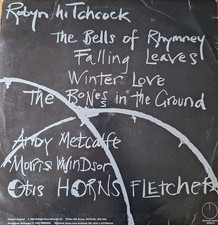 Robyn hiTchcock
The Bells of Rhymney
Falling Leaves
Winter Love
The BoNes in the Ground
Andy Metcalfe
Morris Windsor
Otis HORNS Fletcher